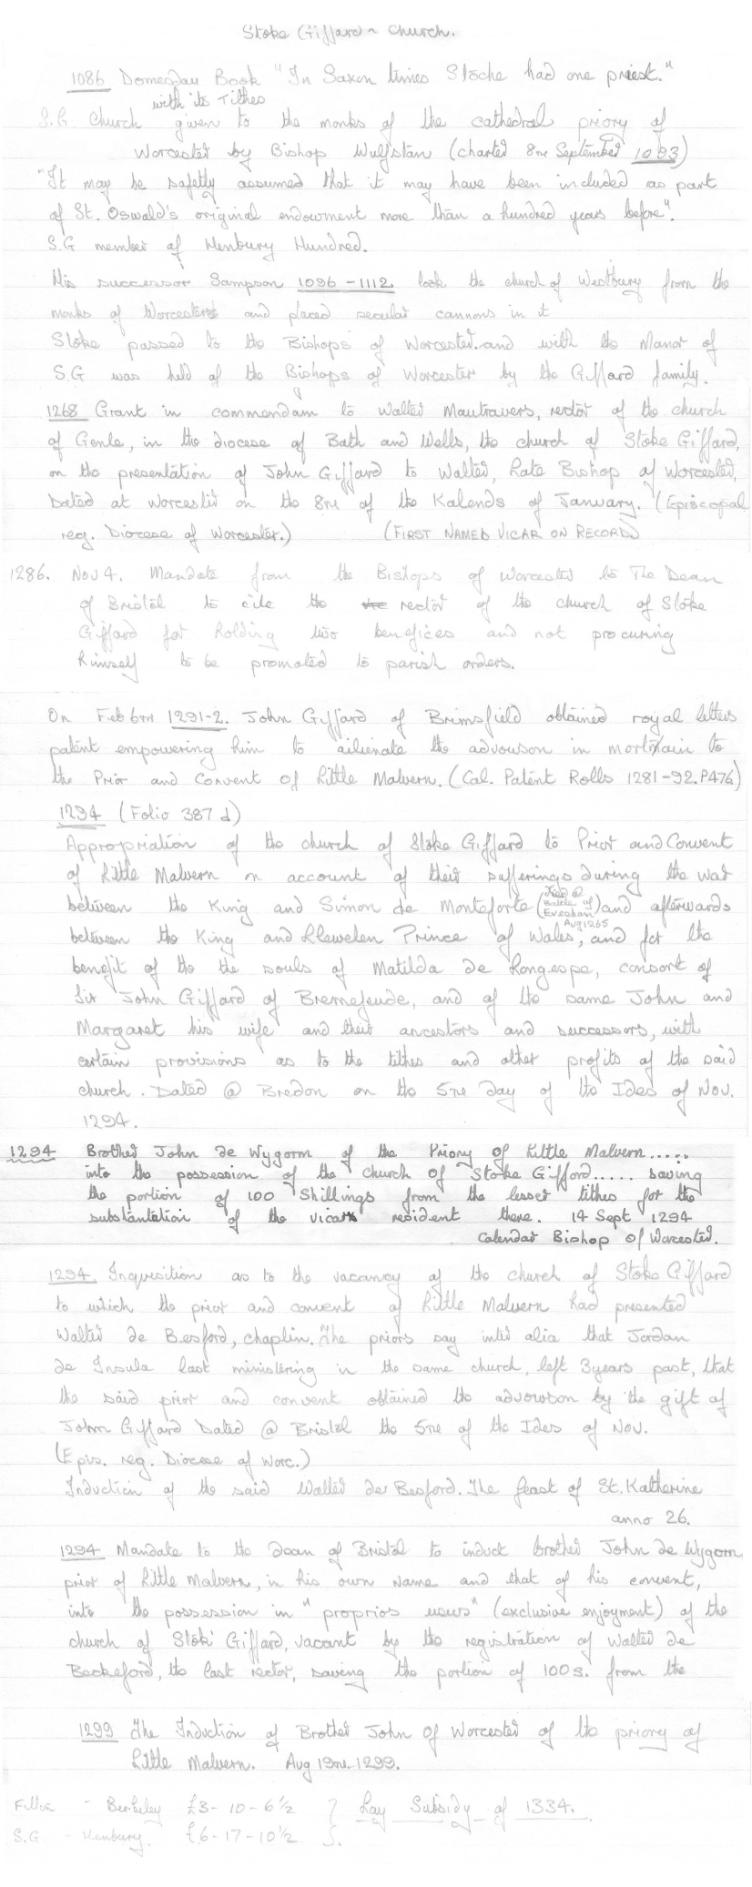 Stoke Giffard ~ Church.
1086 Domesday Book "In Saxon times Stoche had one priest."
with its Tithes
S.G. Church given to the monks of the cathedral priory of
Worcester by Bishop Wulfstan (charted 8TH September 1093)
"It may be safely assumed that it may have been included as part
of St. Oswald's original endowment more than a hundred years before".
S.G member of Henbury Hundred.
His successor Sampson 1096 - 1112 took the church of Westbury from the
monks of Worcester and placed secular cannons in it
Stoke passed to the Bishops of Worcester and with the Manor of
S.G was held of the Bishops of Worcester by the Giffard family.
1268 Grant in commendam to Walter Mautravers, rector of the church
of Gonle, in the diocese of Bath and Wells, the church of Stoke Giffard,
on the presentation of John Giffard to Walter, Late Bishop of Worcester,
Dated at Worcester on the 8TH of the Kalends of January. (Episcopal
reg. Diocese of Worcester.) (FIRST NAMED VICAR ON RECORD)
1286. Nov 4. Mandate from the Bishops of Worcester to The Dean
of Bristol to cite the rector of the church of Stoke
Giffard for holding two benefices and not procuring
himself to be promoted to parish orders.
On Feb 6TH 1291-2. John Giffard of Brimsfield obtained royal letters
patent empowering him to ailienate the advowson in mortmain to
the Prior and Convent of Little Malvern. (Cal. Patent Rolls 1281-92. P476)
1294 (Folio 387 d)
Appropriation of the church of Stoke Giffard to Prior and Convent
of Little Malvern on account of their sufferings during the war
between the King and Simon de Monteforte (died @ Battle of Evesham Aug 1265) and afterwards
between the King and Llewelen Prince of Wales, and for the
benefit of the the souls of Matilda de Longespe, consort of
Sir John Giffard of Bremefeude, and of the same John and
Margaret his wife and their ancestors and successors, with
certain provisions as to the tithes and other profits of the said
church. Dated @ Bredon on the 5TH day of the Ides of Nov.
1294.
1294 Brother John de Wygorn of the Priory of Little Malvern.....
into the possession of the church of Stoke Gifford..... saving
the portion of 100 Shillings from the lesser tithes for the
substantation of the vicar resident there. 14 Sept 1294
Calendar Bishop of Worcester.
1294 Inquisition as to the vacancy of the church of Stoke Giffard
to which the prior and convent of Little Malvern had presented
Walter de Besford, chaplin. The priors say inter alia that Jordan
de Insula last ministering in the same church, left 3 years past, that
the said prior and convent obtained the advowson by the gift of
John Giffard Dated @ Bristol the 5TH of the Ides of Nov.
(Epis. reg. Diocese of Worc.)
Induction of the said Walter de Besford. The feast of St. Katherine
anno 26.
1294 Mandate to the dean of Bristol to induct brother John de Wygorn
prior of Little Malvern, in his own name and that of his convent,
into the possession in "proprios usus" (exclusive enjoyment) of the
church of Stok' Giffard, vacant by the registration of Walter de
Beckeford, the last rector, saving the portion of 100s. from the
1299 The Induction of Brother John of Worcester of the priory of
Little Malvern. Aug 19TH 1299.
- Berkeley £3-10-6½ } Lay Subsidy of 1334.
S.G - Henbury. £6-17-10½ }